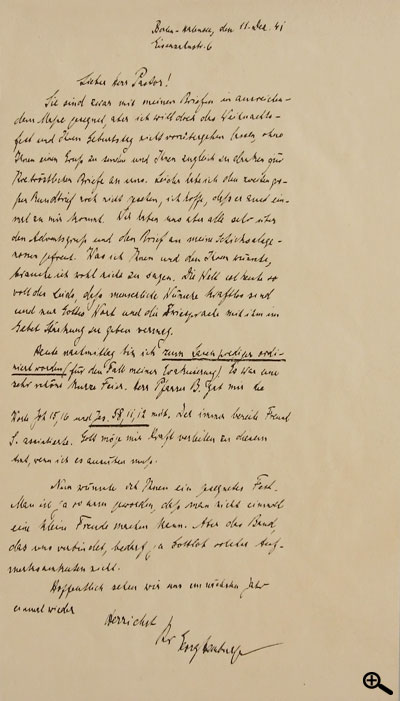 Berlin-Halensee, den 11. Dez. 41
Eisenzahnstr. 6
Lieber Herr Pastor!
Sie sind zwar mit meinen Briefen in ausreichen-
dem Maße gesegnet, aber ich will doch das Weihnachts-
fest und Ihren Geburtstag nicht vorübergehen lassen, ohne
Ihnen einen Gruß zu senden und Ihnen zugleich zu danken für
Ihre tröstlichen Briefe an uns. Leider habe ich den zweiten
Rundbrief noch nicht gesehen, ich hoffe, daß er auch ein-
mal zu mir kommt. Wir haben uns aber alle sehr über
den Adventsgruß und den Brief an meine Schicksalsge-
nossen gefreut. Was ich Ihnen und den Ihren wünsche,
brauche ich wohl nicht zu sagen. Die Welt ist heute so
voll des Leides, daß menschliche Wünsche kraftlos sind
und nur Gottes Wort und die Zwiesprache mit ihm im
Gebet Stärkung zu geben vermag.
Heute nachmittag bin ich zum Laienprediger ordi-
niert worden für den Fall meiner Evakuierung! Es war eine
sehr schöne kurze Feier. Herr Pfarrer B. gab mir die
Worte Joh 15,16 und Jes. 58, 11, 12 mit. Der immer bereite Freund
S. assistierte. Gott möge mir Kraft verleihen zu diesem
Amt, wenn ich es ausüben muß.
Nun wünsche ich Ihnen ein gesegnetes Fest.
Man ist ja so arm geworden, daß man nicht einmal
eine kleine Freude machen kann. Aber das Band,
das uns verbindet, bedarf ja Gottlob solcher Auf-
merksamkeiten nicht.
Hoffentlich sehen wir uns im nächsten Jahr
einmal wieder
Herzlichst
Ihr